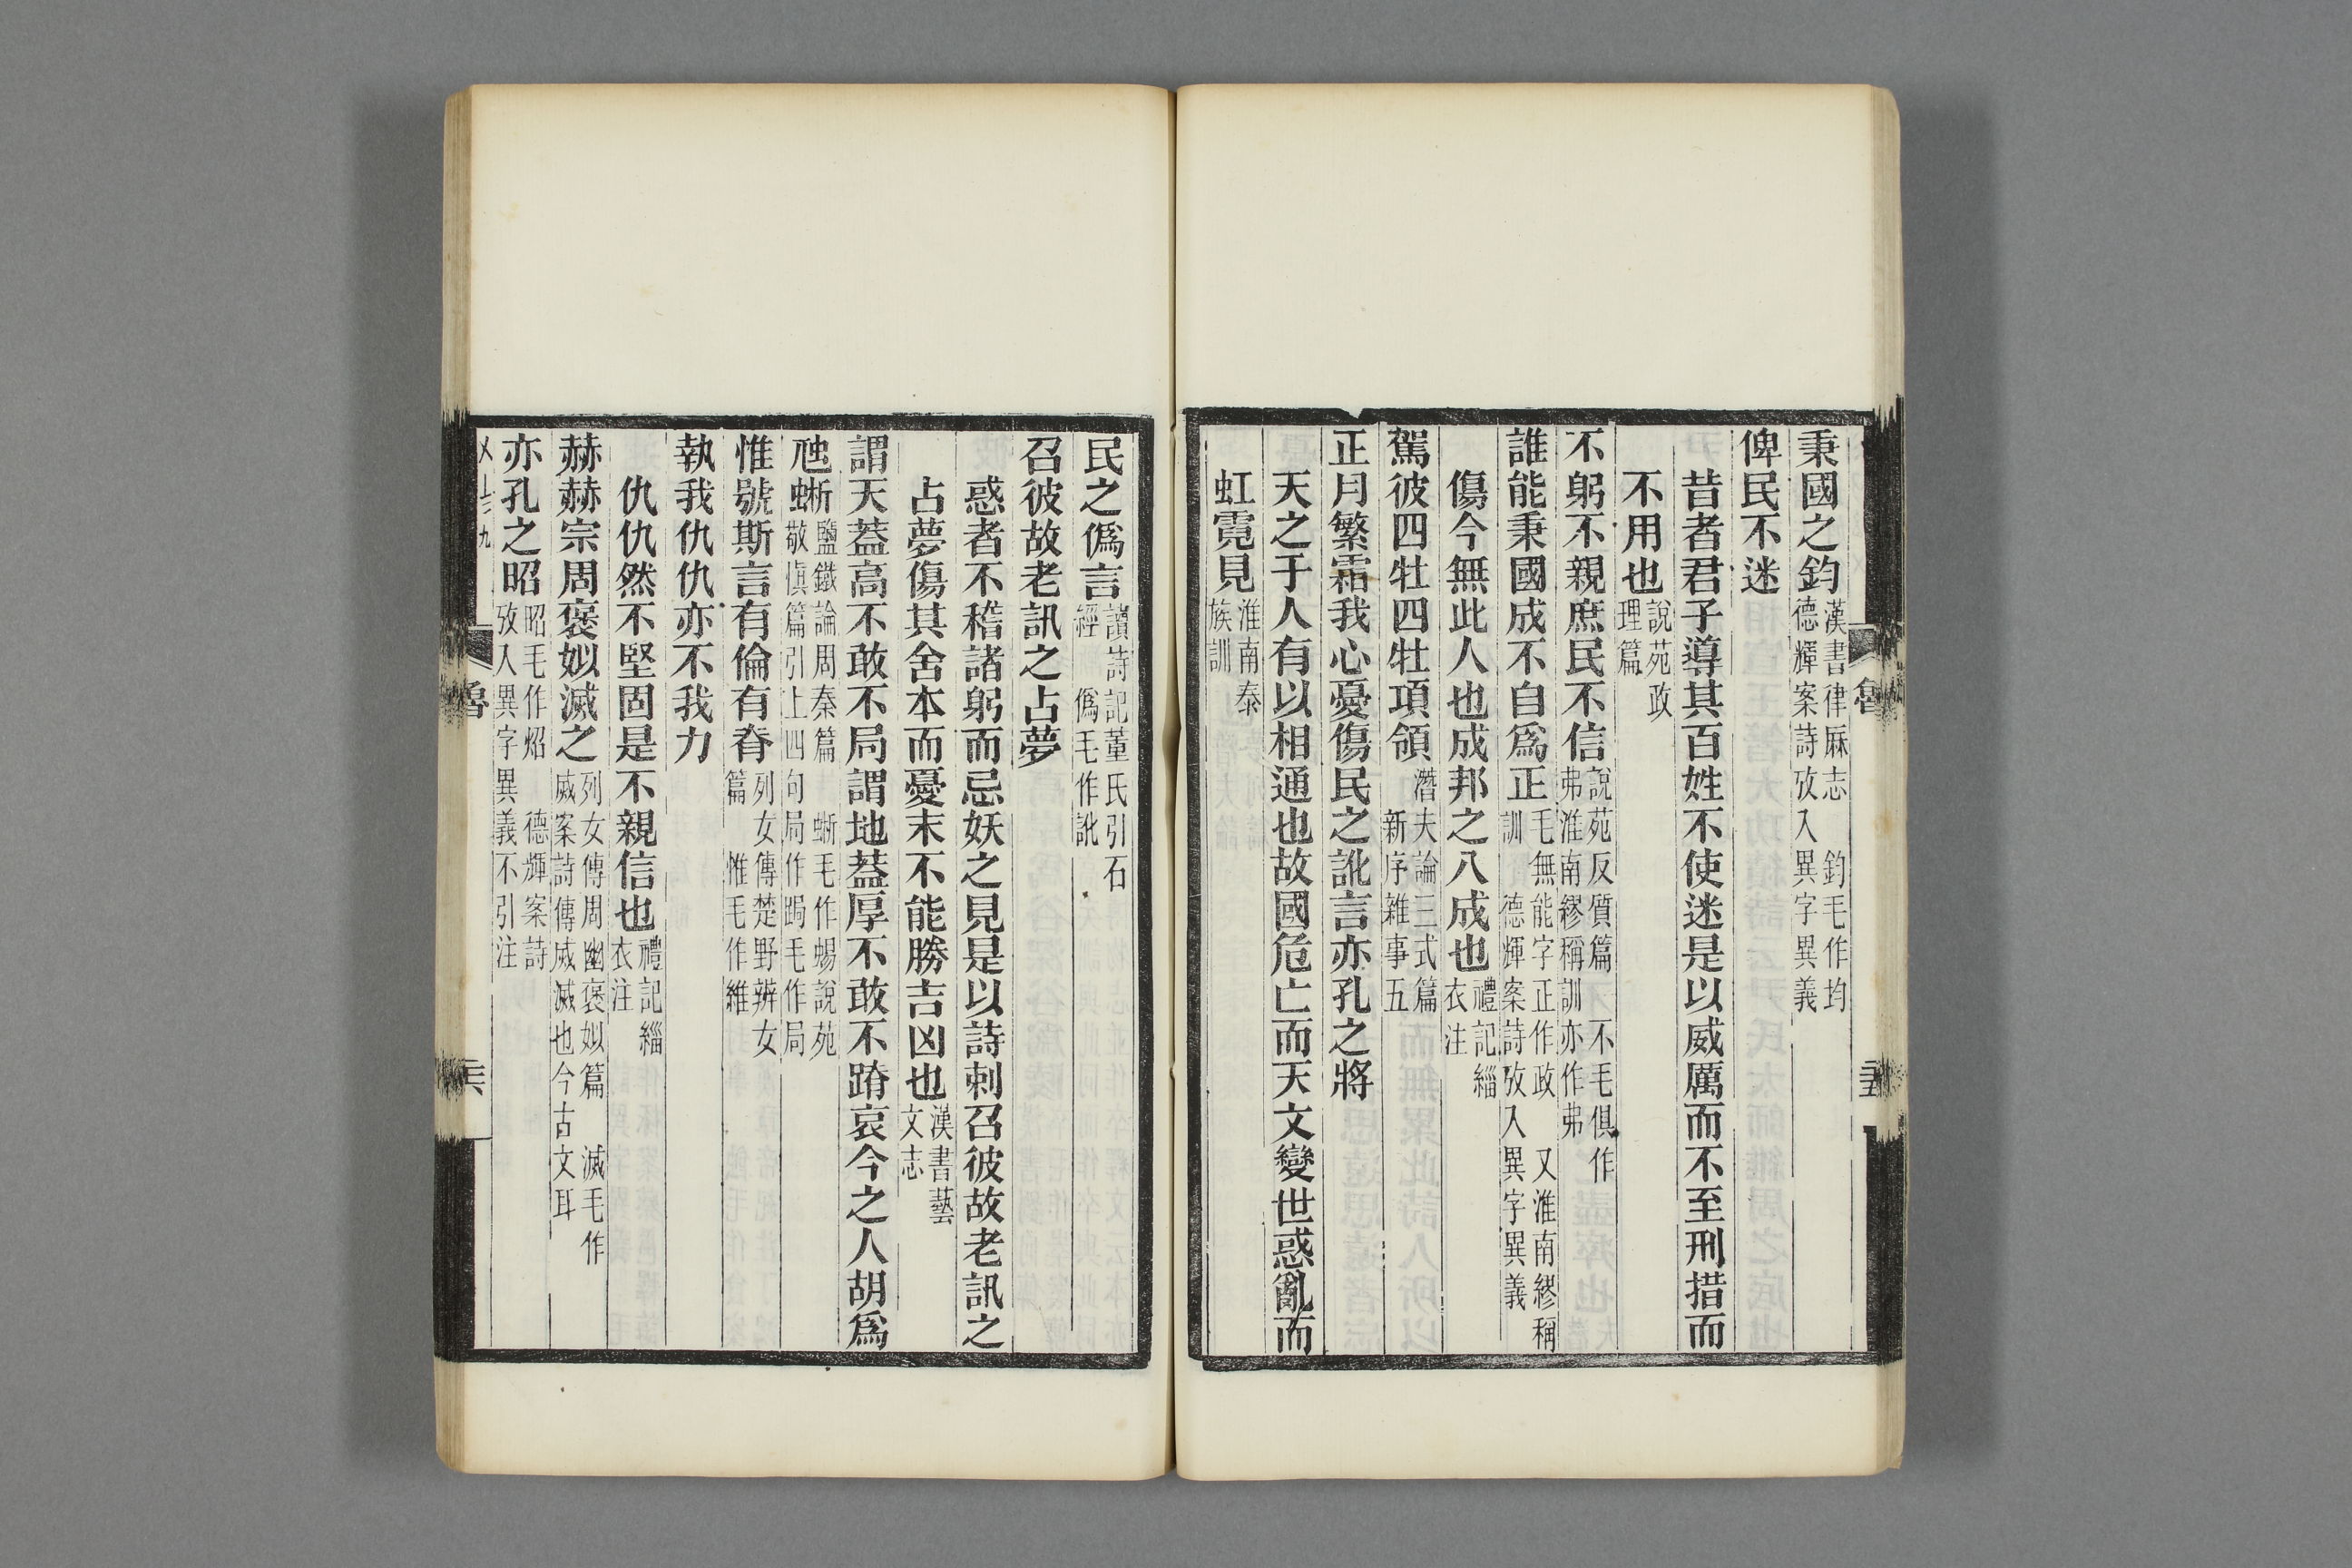 秉國之鈞漢書律厤志　鈞毛作均德輝案詩攷入異字異義
俾民不迷
昔者君子導其百姓不使迷是以威厲而不至刑措而
不用也說苑政理篇
不躬不親庶民不信說苑反質篇　不毛俱作弗淮南繆稱訓亦作弗
誰能秉國成不自爲正毛無能字正作政　又淮南繆稱訓　德輝案詩攷入異字異義
傷今無此人也成邦之八成也禮記緇衣注
駕彼四牡四牡項領潛夫論三式篇　新序雜事五
正月繁霜我心憂傷民之訛言亦孔之將
天之于人有以相通也故國危亡而天文變世惑亂而
虹霓見淮南泰族訓
魯
三五
民之僞言讀詩記董氏引石經　僞毛作訛
召彼故老訊之占夢
惑者不稽諸躬而忌妖之見是以詩刺召彼故老訊之
占夢傷其舍本而憂末不能勝吉凶也漢書藝文志
謂天蓋高不敢不局謂地蓋厚不敢不蹐哀今之人胡爲
虺蜥鹽鐵論周秦篇　蜥毛作蜴說苑敬愼篇引上四句局作跼毛作局
惟號斯言有倫有脊列女傳楚野辨女篇　惟毛作維
執我仇仇亦不我力
仇仇然不堅固是不親信也禮記緇衣注
赫赫宗周褒姒滅之列女傳周幽褒姒篇　滅毛作烕案詩傳烕滅也今古文耳
亦孔之昭昭毛作炤　德輝案詩攷入異字異義不引注
魯